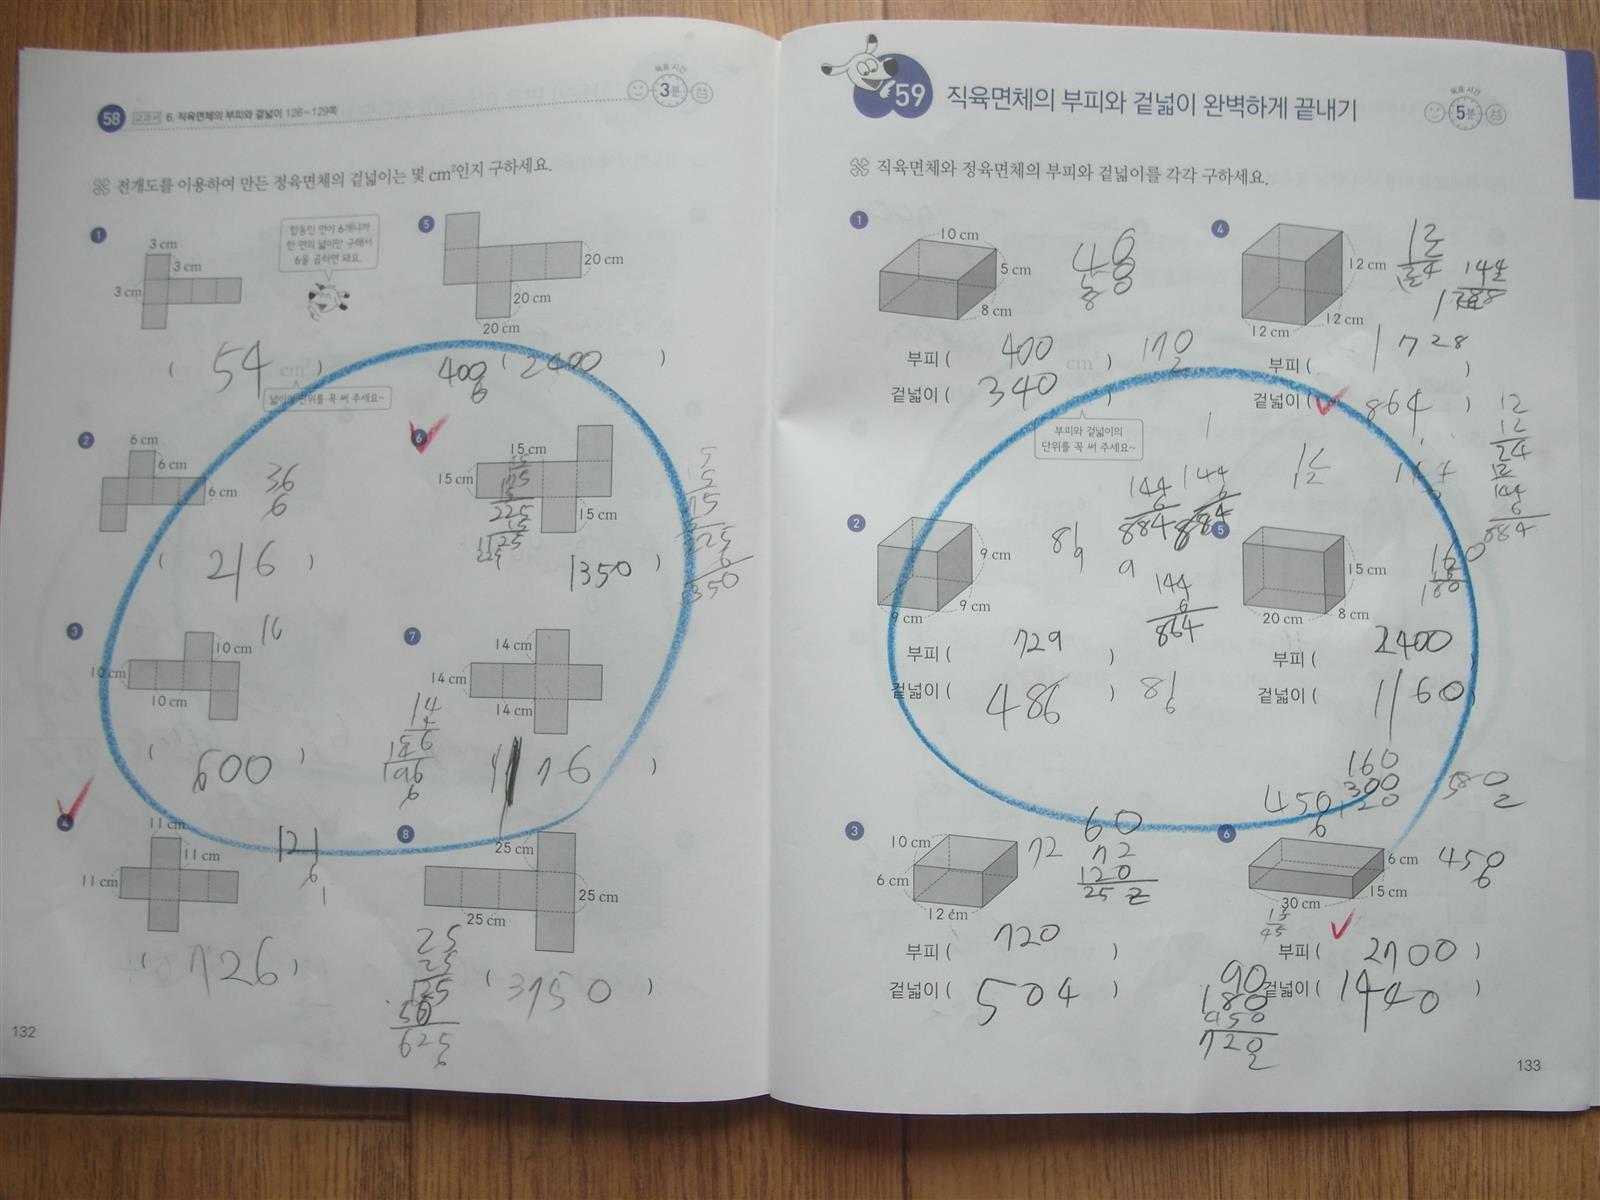 58 교과서 6. 직육면체의 부피와 겉넓이 126~129쪽
목표 시간
3분
전개도를 이용하여 만든 정육면체의 겉넓이는 몇 cm²인지 구하세요.
1
3 cm
3 cm
3 cm
합동인 면이 6개니까
한 면의 넓이만 구해서
6을 곱하면 돼요.
( 54 cm² )
넓이의 단위를 꼭 써 주세요~
2
6 cm
6 cm
6 cm
36
6
( 216 )
3
10 cm
10 cm
10 cm
( 600 )
4
11 cm
11 cm
11 cm
121
6
( 726 )
5
20 cm
20 cm
20 cm
400
6
( 2400 )
6
15 cm
15 cm
15 cm
225
1350 )
7
14 cm
14 cm
14 cm
14
196
6
1176 )
8
25 cm
25 cm
25 cm
25
25
125
50
625
6
( 3750 )
132
59 직육면체의 부피와 겉넓이 완벽하게 끝내기
목표 시간
5분
직육면체와 정육면체의 부피와 겉넓이를 각각 구하세요.
1
10 cm
5 cm
8 cm
40
50
80
부피 ( 400 cm³ )
170
2
겉넓이 ( 340 )
부피와 겉넓이의
단위를 꼭 써 주세요~
2
9 cm
9 cm
9 cm
81
9
부피 ( 729 )
겉넓이 ( 486 )
81
6
144
6
884
144
6
864
3
10 cm
6 cm
12 cm
72
60
72
120
252
부피 ( 720 )
겉넓이 ( 504 )
4
12 cm
12 cm
12 cm
12
24
144
288
부피 ( 1728 )
겉넓이 ( 864 )
12
12
24
12
144
6
884
5
15 cm
20 cm
8 cm
160
부피 ( 2400 )
겉넓이 ( 1160 )
160
300
120
580
2
6
6 cm
15 cm
30 cm
450
6
450
6
15
45
부피 ( 2700 )
겉넓이 ( 1440 )
90
180
450
720
2
133